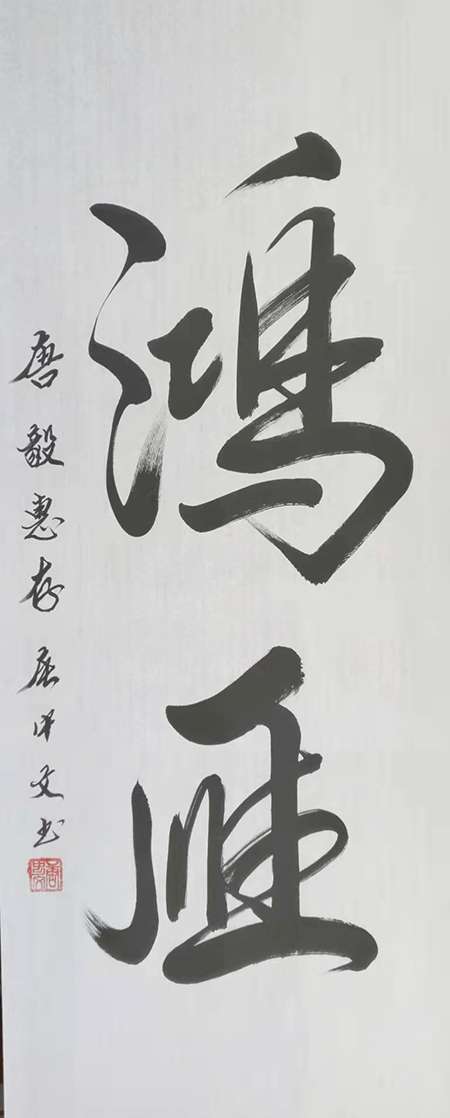 鴻雁
唐毅惠存 屈中文书